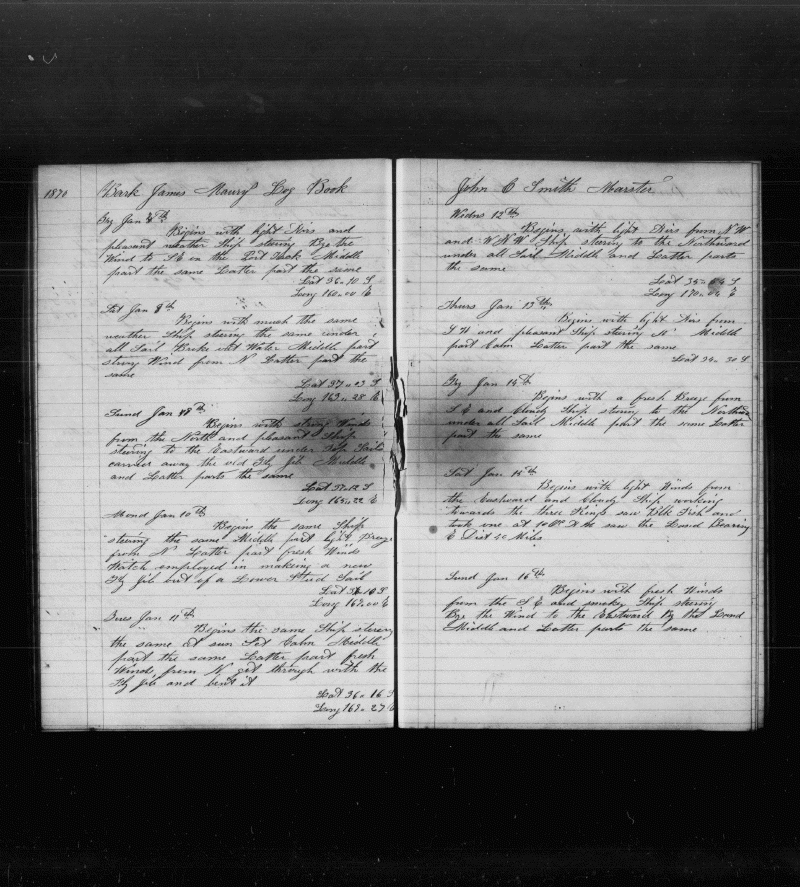 1870
Bark James Maury Log Book
Fry Jan 7th
Begins with light Airs and
pleasant weather Ship stering Bye the
Wind to S E on the Port Tack Middle
part the same Latter part the same
Lat 36.. 10 S
Long 160.. 00 E
Sat Jan 8th
Begins with much the same
weather Ship stering the same under
all Sail Broke out Water Middle part
strong Wind from N Latter part the
same
Lat 37.. 03 S
Long 163.. 28 E
Sund Jan 8th
Begins with strong Winds
from the North and pleasant Ship
stering to the Eastward under Top Sails
carrier away the old Fly Jib Middle
and Latter parts the same
Lat 37.. 12 S
Long 165.. 22 E
Mond Jan 10th
Begins the same Ship
stering the same Middle part light Breeze
from N Latter part fresh Winds
Watch employed in making a new
Fly Jib out of a Lower Stud Sail
Lat 36 10 S
Long 169.. 00 E
Tues Jan 11th
Begins the same Ship stering
the same at sun Set Calm Middle
part the same Latter part fresh
Wind from N got through with the
Fly Jib and bent it
Lat 36.. 16 S
Long 169.. 27 E
John C Smith Marster
Wedns 12th
Begins with light Airs from N W
and W N W Ship stering to the Northward
under all Sail Middle and Latter parts
the same
Lat 35.. S
Long 170.. 04 E
Thurs Jan 13th
Begins with light Airs from
S W and pleasant Ship stering N Middle
part Calm Latter part the same
Lat 34.. 30 S
Fry Jan 14th
Begins with a fresh Breeze from
S E and Cloudy Ship stering to the Northward
under all Sail Middle part the same Latter
part the same
Sat Jan 15th
Begins with light Winds from
the Eastward and Cloudy Ship working
towards the three Kings saw Blk Fish and
took one at saw the Land Bearing
E Dist 40 Miles
Sund Jan 16th
Begins with fresh Winds
from the S E and smoky Ship stering
By the Wind to the Eastward By the Land
Middle and Latter parts the same